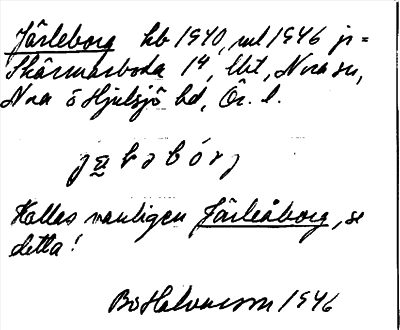 Järleborg hb 1940, ml 1946 jr =
Skärmarboda 1⁴, lbt, Nora sn,
Nora o Hjulsjö bd, Ör. l.
Kallas vanligen Järleåborg, se
detta!
Bo Halvarson 1946